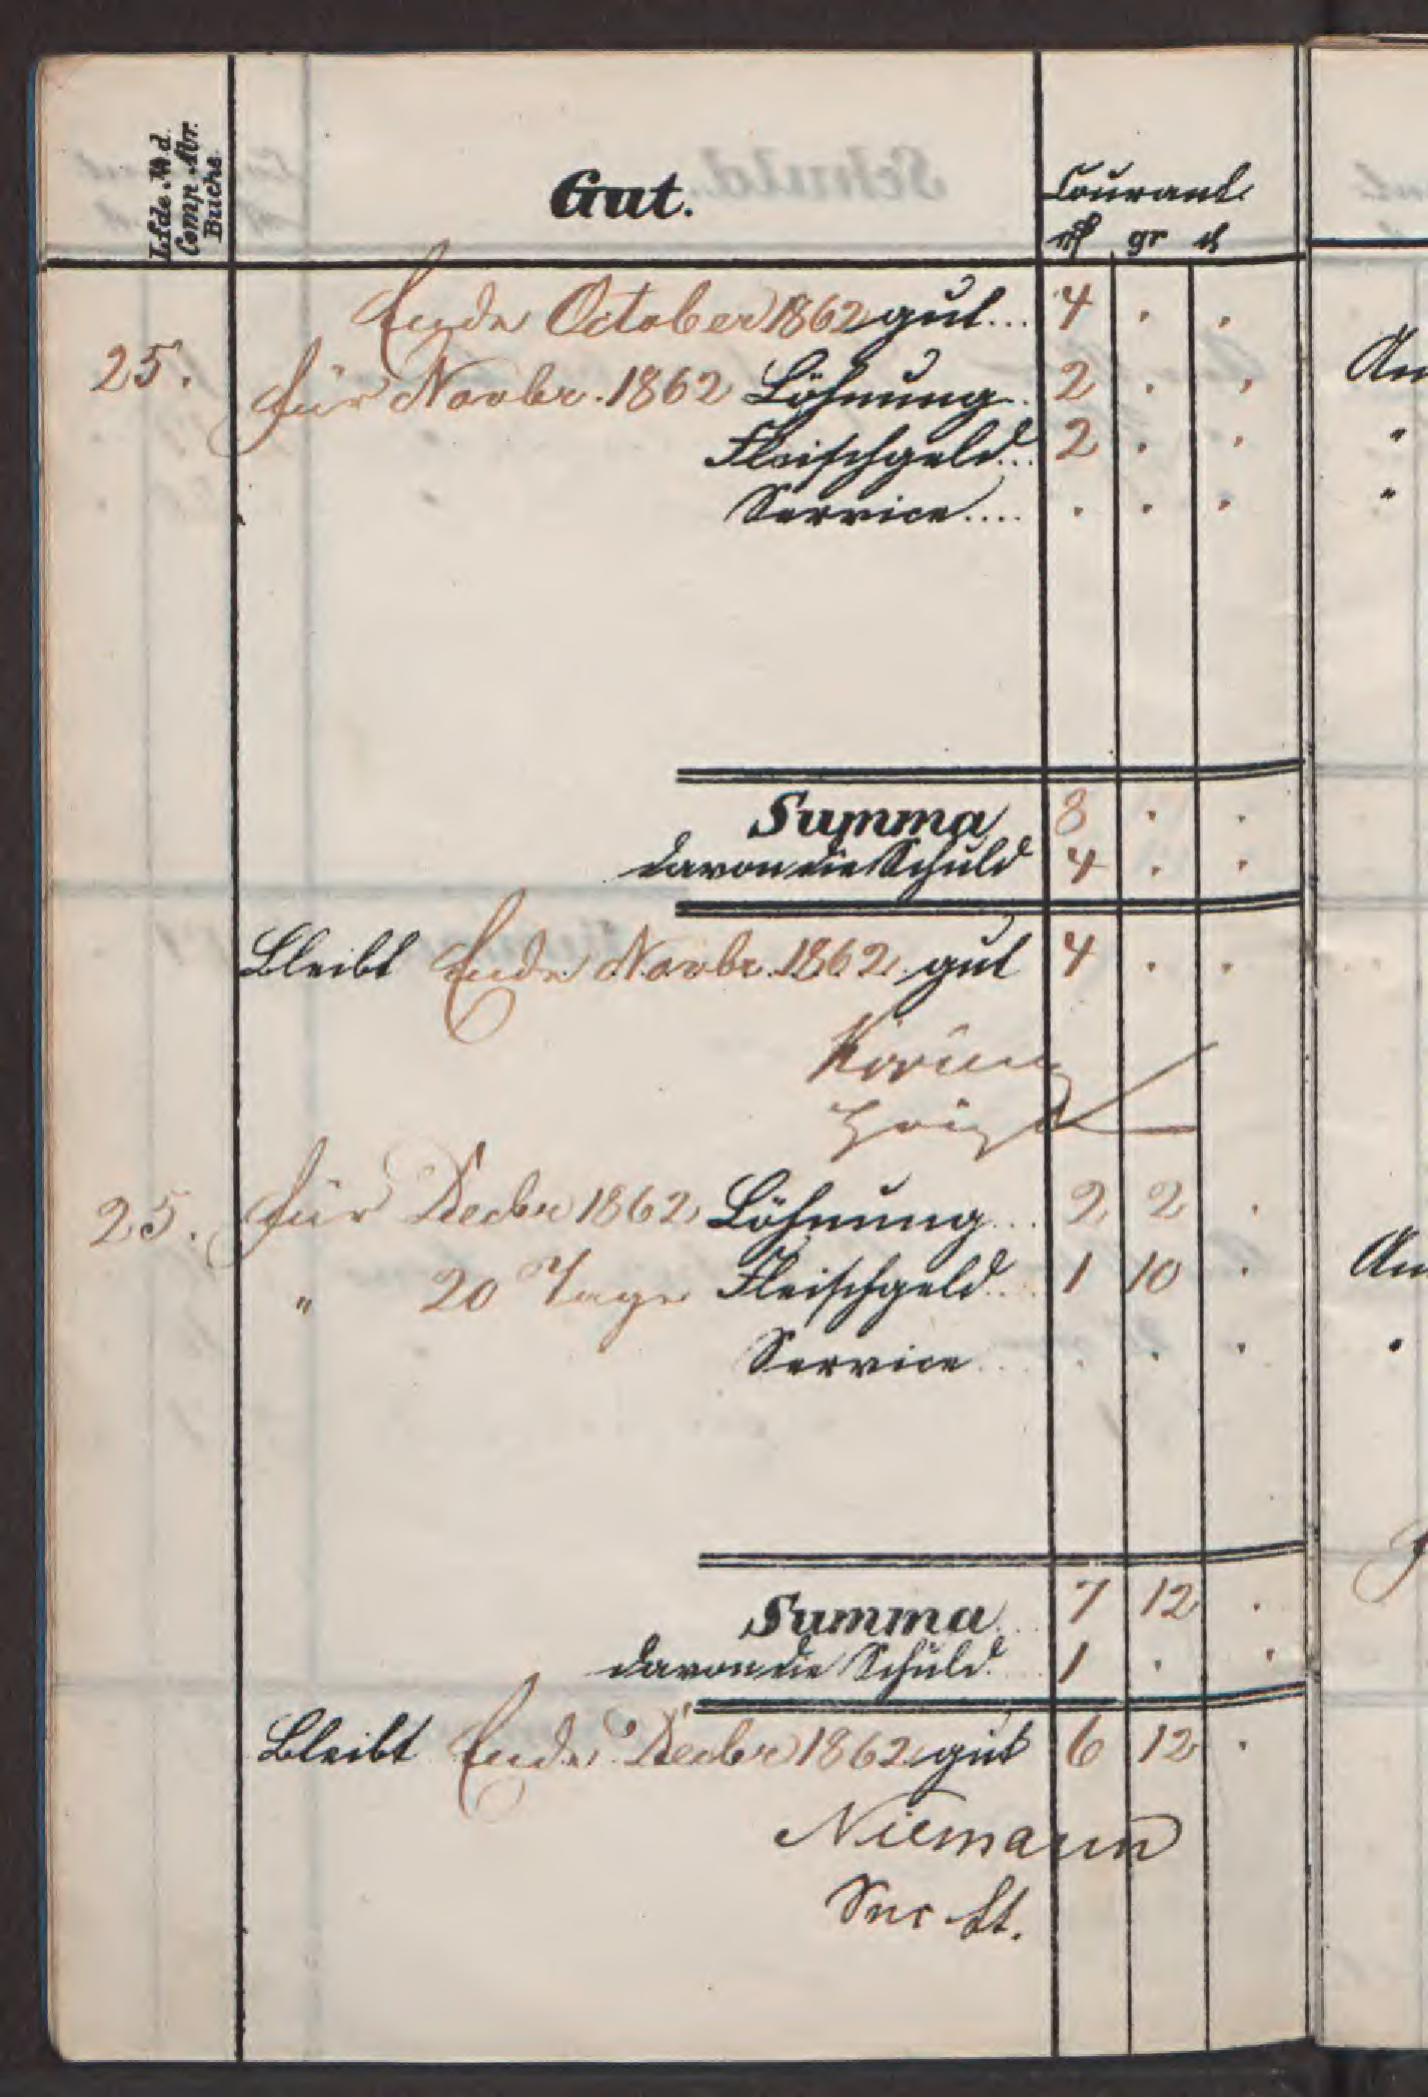 Lfde. № d.
Comp. Abr.
Buchs.
Gut.
Courant
rℓ gr ₰
Ende October 1862 gut... 4 . .
25. für Novbr. 1862 Löhnung. 2 . .
Fleischgeld... 2 . .
Service.... . . .
Summa 8 . .
davon die Schuld 4 . .
Bleibt Ende Novbr. 1862 gut 4 . .
25. für Decbr 1862 Löhnung... 2 2 .
" 20 Tage Fleischgeld... 1 10 .
Service... . . .
Summa.. 7 12 .
davon die Schuld.. 1 . .
Bleibt Ende Decbr 1862 gut 6 12 .
Niemann
An
"
"
An